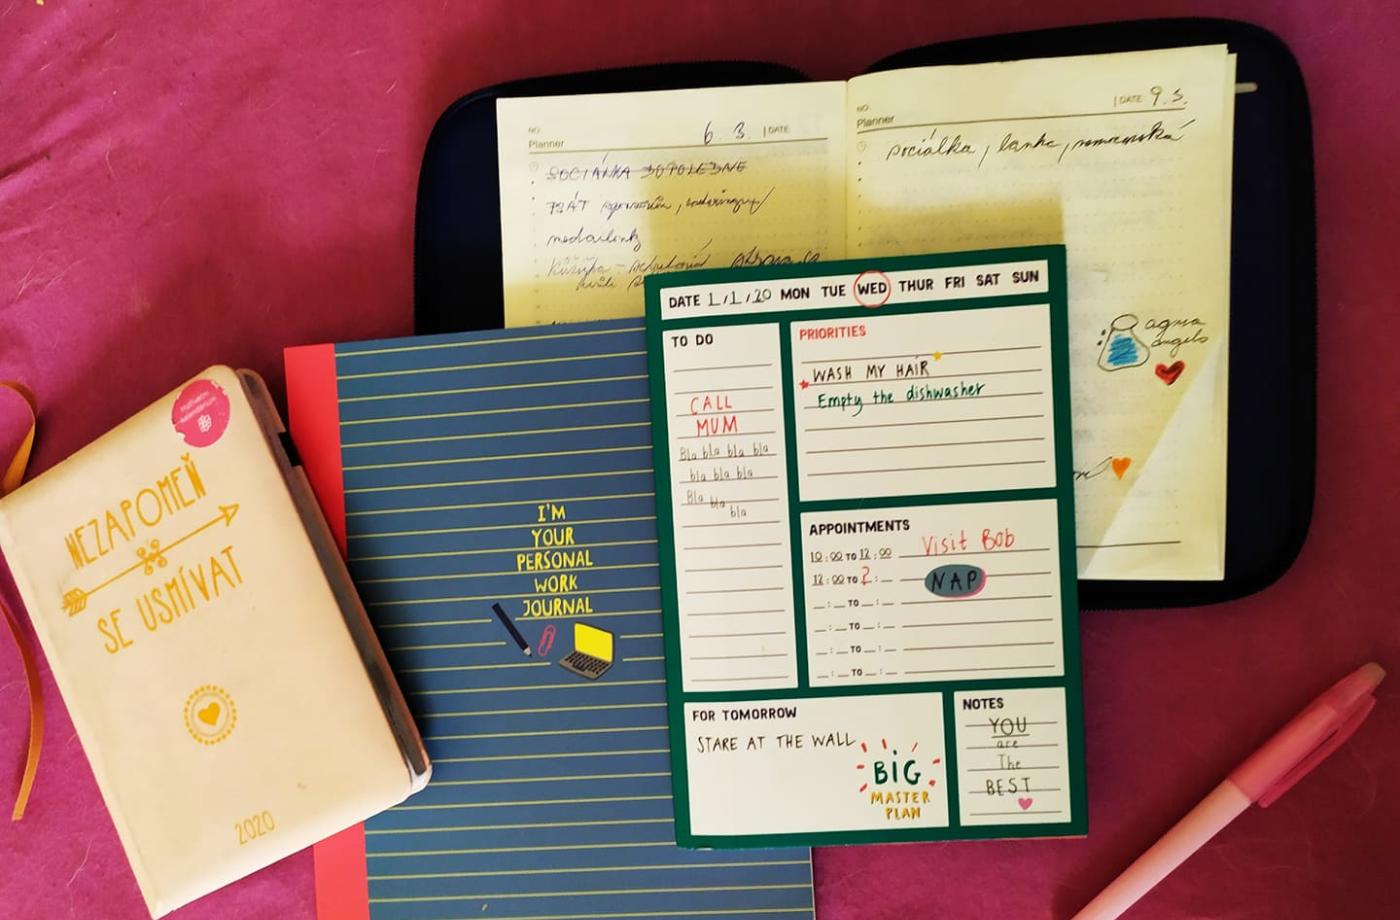 NO.
Planner
6. 3. | DATE
SOCIÁLKA DOPOLEDNE
PSÁT
medailonky
NO.
Planner
| DATE 9.3.
sociálka, banka,
aqua
angels
NEZAPOMEŇ
SE USMÍVAT
2020
I'M
YOUR
PERSONAL
WORK
JOURNAL
DATE 1/1/20 MON TUE WED THUR FRI SAT SUN
TO DO
CALL
MUM
Bla bla bla bla
bla bla bla
Bla bla
bla
PRIORITIES
WASH MY HAIR
Empty the dishwasher
APPOINTMENTS
10:00 TO 12:00 Visit Bob
12:00 TO ?:_ NAP
_:_ TO _:_
_:_ TO _:_
_:_ TO _:_
_:_ TO _:_
FOR TOMORROW
STARE AT THE WALL
BIG
MASTER
PLAN
NOTES
YOU
are
The
BEST